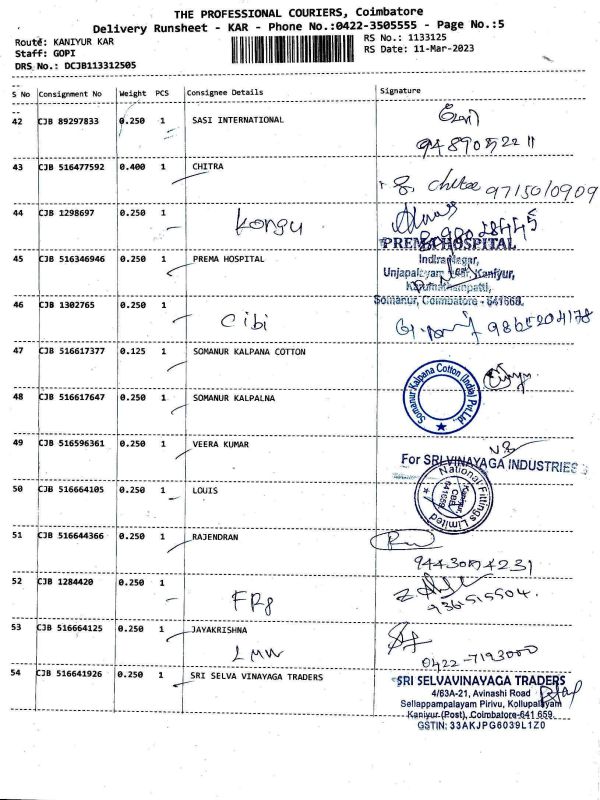 THE PROFESSIONAL COURIERS, Coimbatore
Delivery Runsheet - KAR - Phone No.:0422-3505555 - Page No.:5
Route: KANIYUR KAR
RS No.: 1133125
Staff: GOPI
RS Date: 11-Mar-2023
DRS No.: DCJB113312505
S No Consignment No Weight PCS Consignee Details Signature
42 CJB 89297833 0.250 1 SASI INTERNATIONAL
9489052211
43 CJB 516477592 0.400 1 CHITRA
9715010909
44 CJB 1298697 0.250 1
Kongu
PREMA HOSPITAL
45 CJB 516346946 0.250 1 PREMA HOSPITAL
Indira Nagar,
Unjapalayam Kaniyur,
Karumathampatti,
Somanur, Coimbatore - 641668.
46 CJB 1302765 0.250 1
Cibi
9865204178
47 CJB 516617377 0.125 1 SOMANUR KALPANA COTTON
Somanur Kalpana Cotton (India) Pvt.Ltd.
48 CJB 516617647 0.250 1 SOMANUR KALPALNA
49 CJB 516596361 0.250 1 VEERA KUMAR
For SRI VINAYAGA INDUSTRIES
50 CJB 516664105 0.250 1 LOUIS
National Fittings Limited
Kaniyur
CBE
641659
51 CJB 516644366 0.250 1 RAJENDRAN
52 CJB 1284420 0.250 1
53 CJB 516664125 0.250 1 JAYAKRISHNA
LMW
0422-7193000
54 CJB 516641926 0.250 1 SRI SELVA VINAYAGA TRADERS
SRI SELVAVINAYAGA TRADERS
4/63A-21, Avinashi Road
Sellappampalayam Pirivu, Kollupalayam
Kaniyur (Post), Coimbatore-641 659.
GSTIN: 33AKJPG6039L1Z0